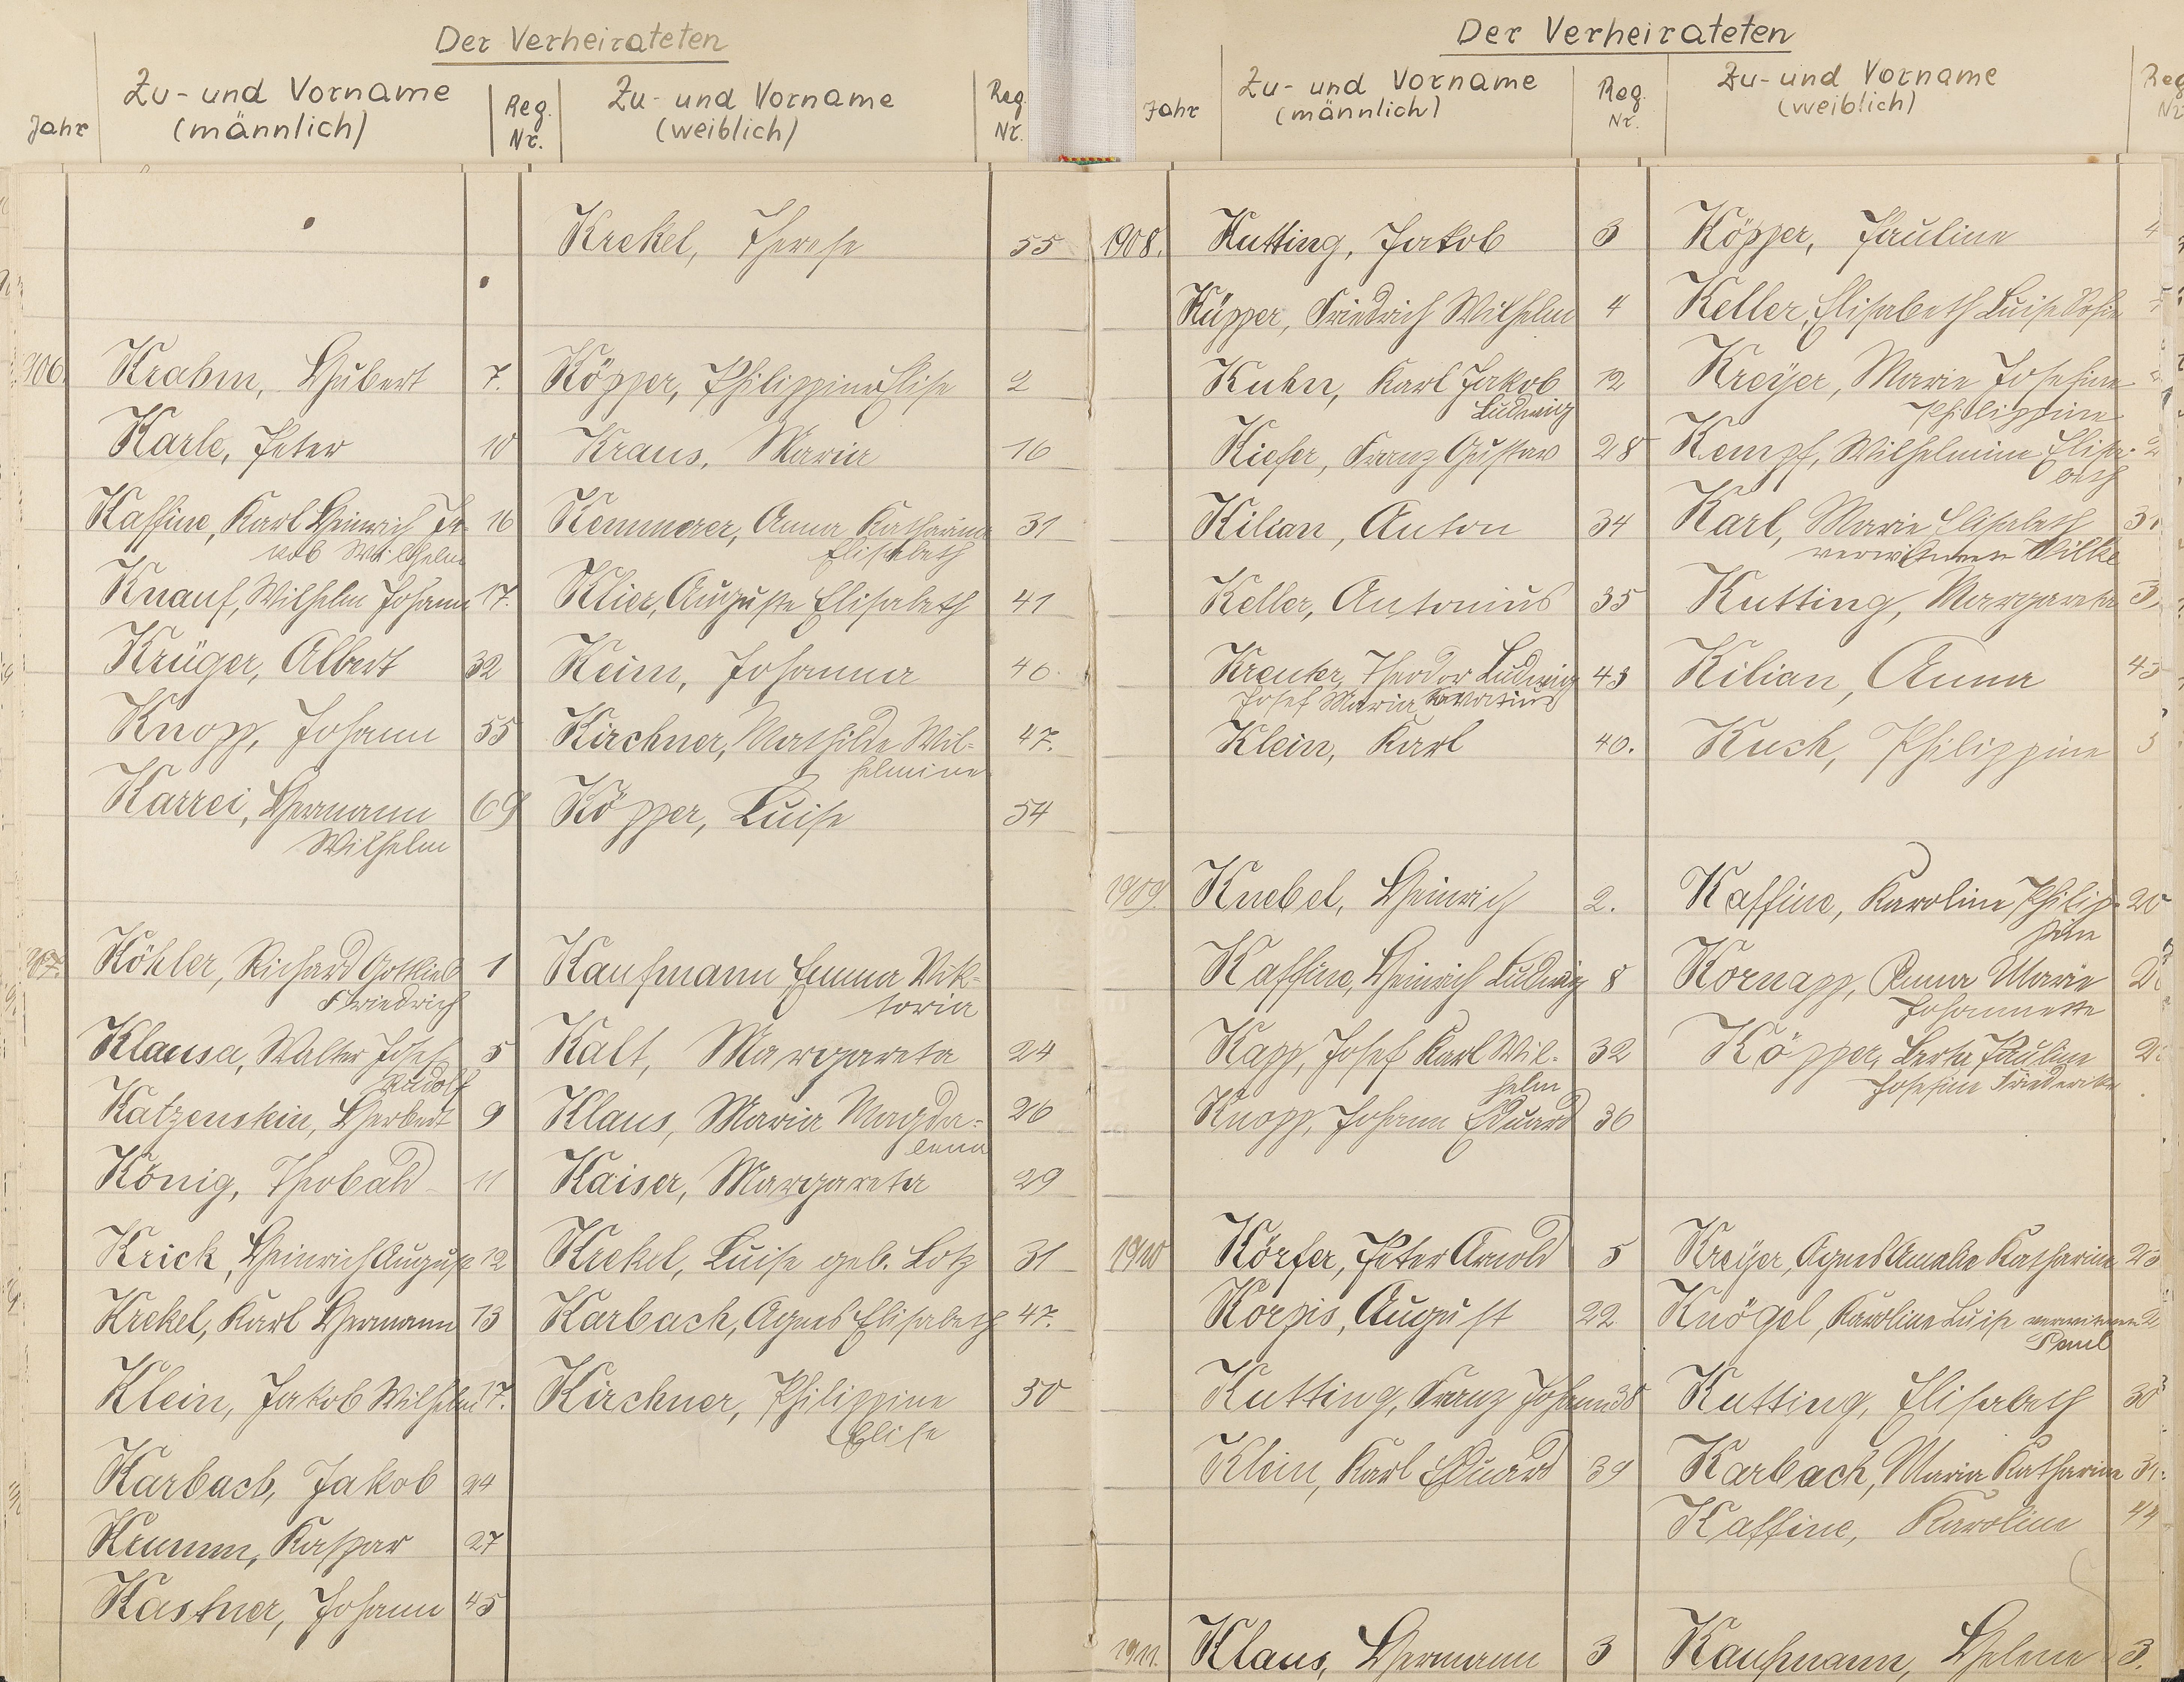 Der Verheirateten
Jahr Zu- und Vorname (männlich) Reg. Nr. Zu- und Vorname (weiblich) Reg. Nr.
Krekel, Therese 55
1906. Krahm, Hubert 7. Köpper, Philippine Elise 2
Karle, Peter 10 Kraus, Maria 16
Kaffine, Karl Heinrich Ja- 16 Kemmerer, Anna Katharina 31
kob Wilhelm Elisabeth
Knauf, Wilhelm Johann 17. Klier, Auguste Elisabeth 41
Krüger, Albert 32 Keim, Johanna 40.
Knopp, Johann 55 Kirchner, Mathilde Wil- 47.
helmine
Karrei, Hermann 69 Köpper, Luise 54
Wilhelm
Köhler, Richard Gottlieb 1 Kaufmann Emma Vik-
Friedrich toria
Klausa, Walter Josef 5 Kalt, Margareta 24
Rudolf
Katzenstein, Herbert 9 Klaus, Maria Magda- 26
lena
König, Theobald 11 Kaiser, Margareta 29
Krick, Heinrich August 12 Krekel, Luise geb. Lotz 31
Krekel, Karl Hermann 13 Karbach, Agnes Elisabeth 47.
Klein, Jakob Wilhelm 17. Kirchner, Philippine 50
Elise
Karbach, Jakob 24
Krumm, Kaspar 27
Kastner, Johann 45
Der Verheirateten
Jahr Zu- und Vorname (männlich) Reg. Nr. Zu- und Vorname (weiblich) Reg Nr
1908. Kutting, Jakob 3 Köpper, Pauline 4
Küpper, Friedrich Wilhelm 4 Keller, Elisabeth Luise Sofie
Kuhn, Karl Jakob 12 Kreÿer, Marie Josefine
Ludwig Philippine
Kiefer, Franz Gustav 28 Kempf, Wilhelmine Elisa- 2
beth
Kilian, Anton 34 Karl, Marie Elisabeth 31
verwitwete Wilke
Keller, Antonius 35 Kutting, Margareta 3
Kreuter, Theodor Ludwig 43 Kilian, Anna 43
Josef Maria
Klein, Karl 40. Kuch, Philippine 5
1909. Knebel, Heinrich 2. Kaffine, Karoline Philip- 20
pine
Kaffine, Heinrich Ludwig 8 Kornapp, Anna Marie 2
Johannette
Kapp, Josef Karl Wil- 32 Köpper, Berta Pauline 2
helm Josefine Friederike
Knopp, Johann Eduard 36
1910 Körfer, Peter Arnold 5 Kreÿer, Agnes Amalie Katharina 23
Korpis, August 22 Knögel, Karoline Luise verwitwete 2
Paul
Kutting, Franz Johann 38 Kutting, Elisabeth 30
Klein, Karl Eduard 39 Karbach, Maria Katharina 31.
Kaffine, Karoline 44
1911. Klaus, Hermann 3 Kaufmann, Helene 3.